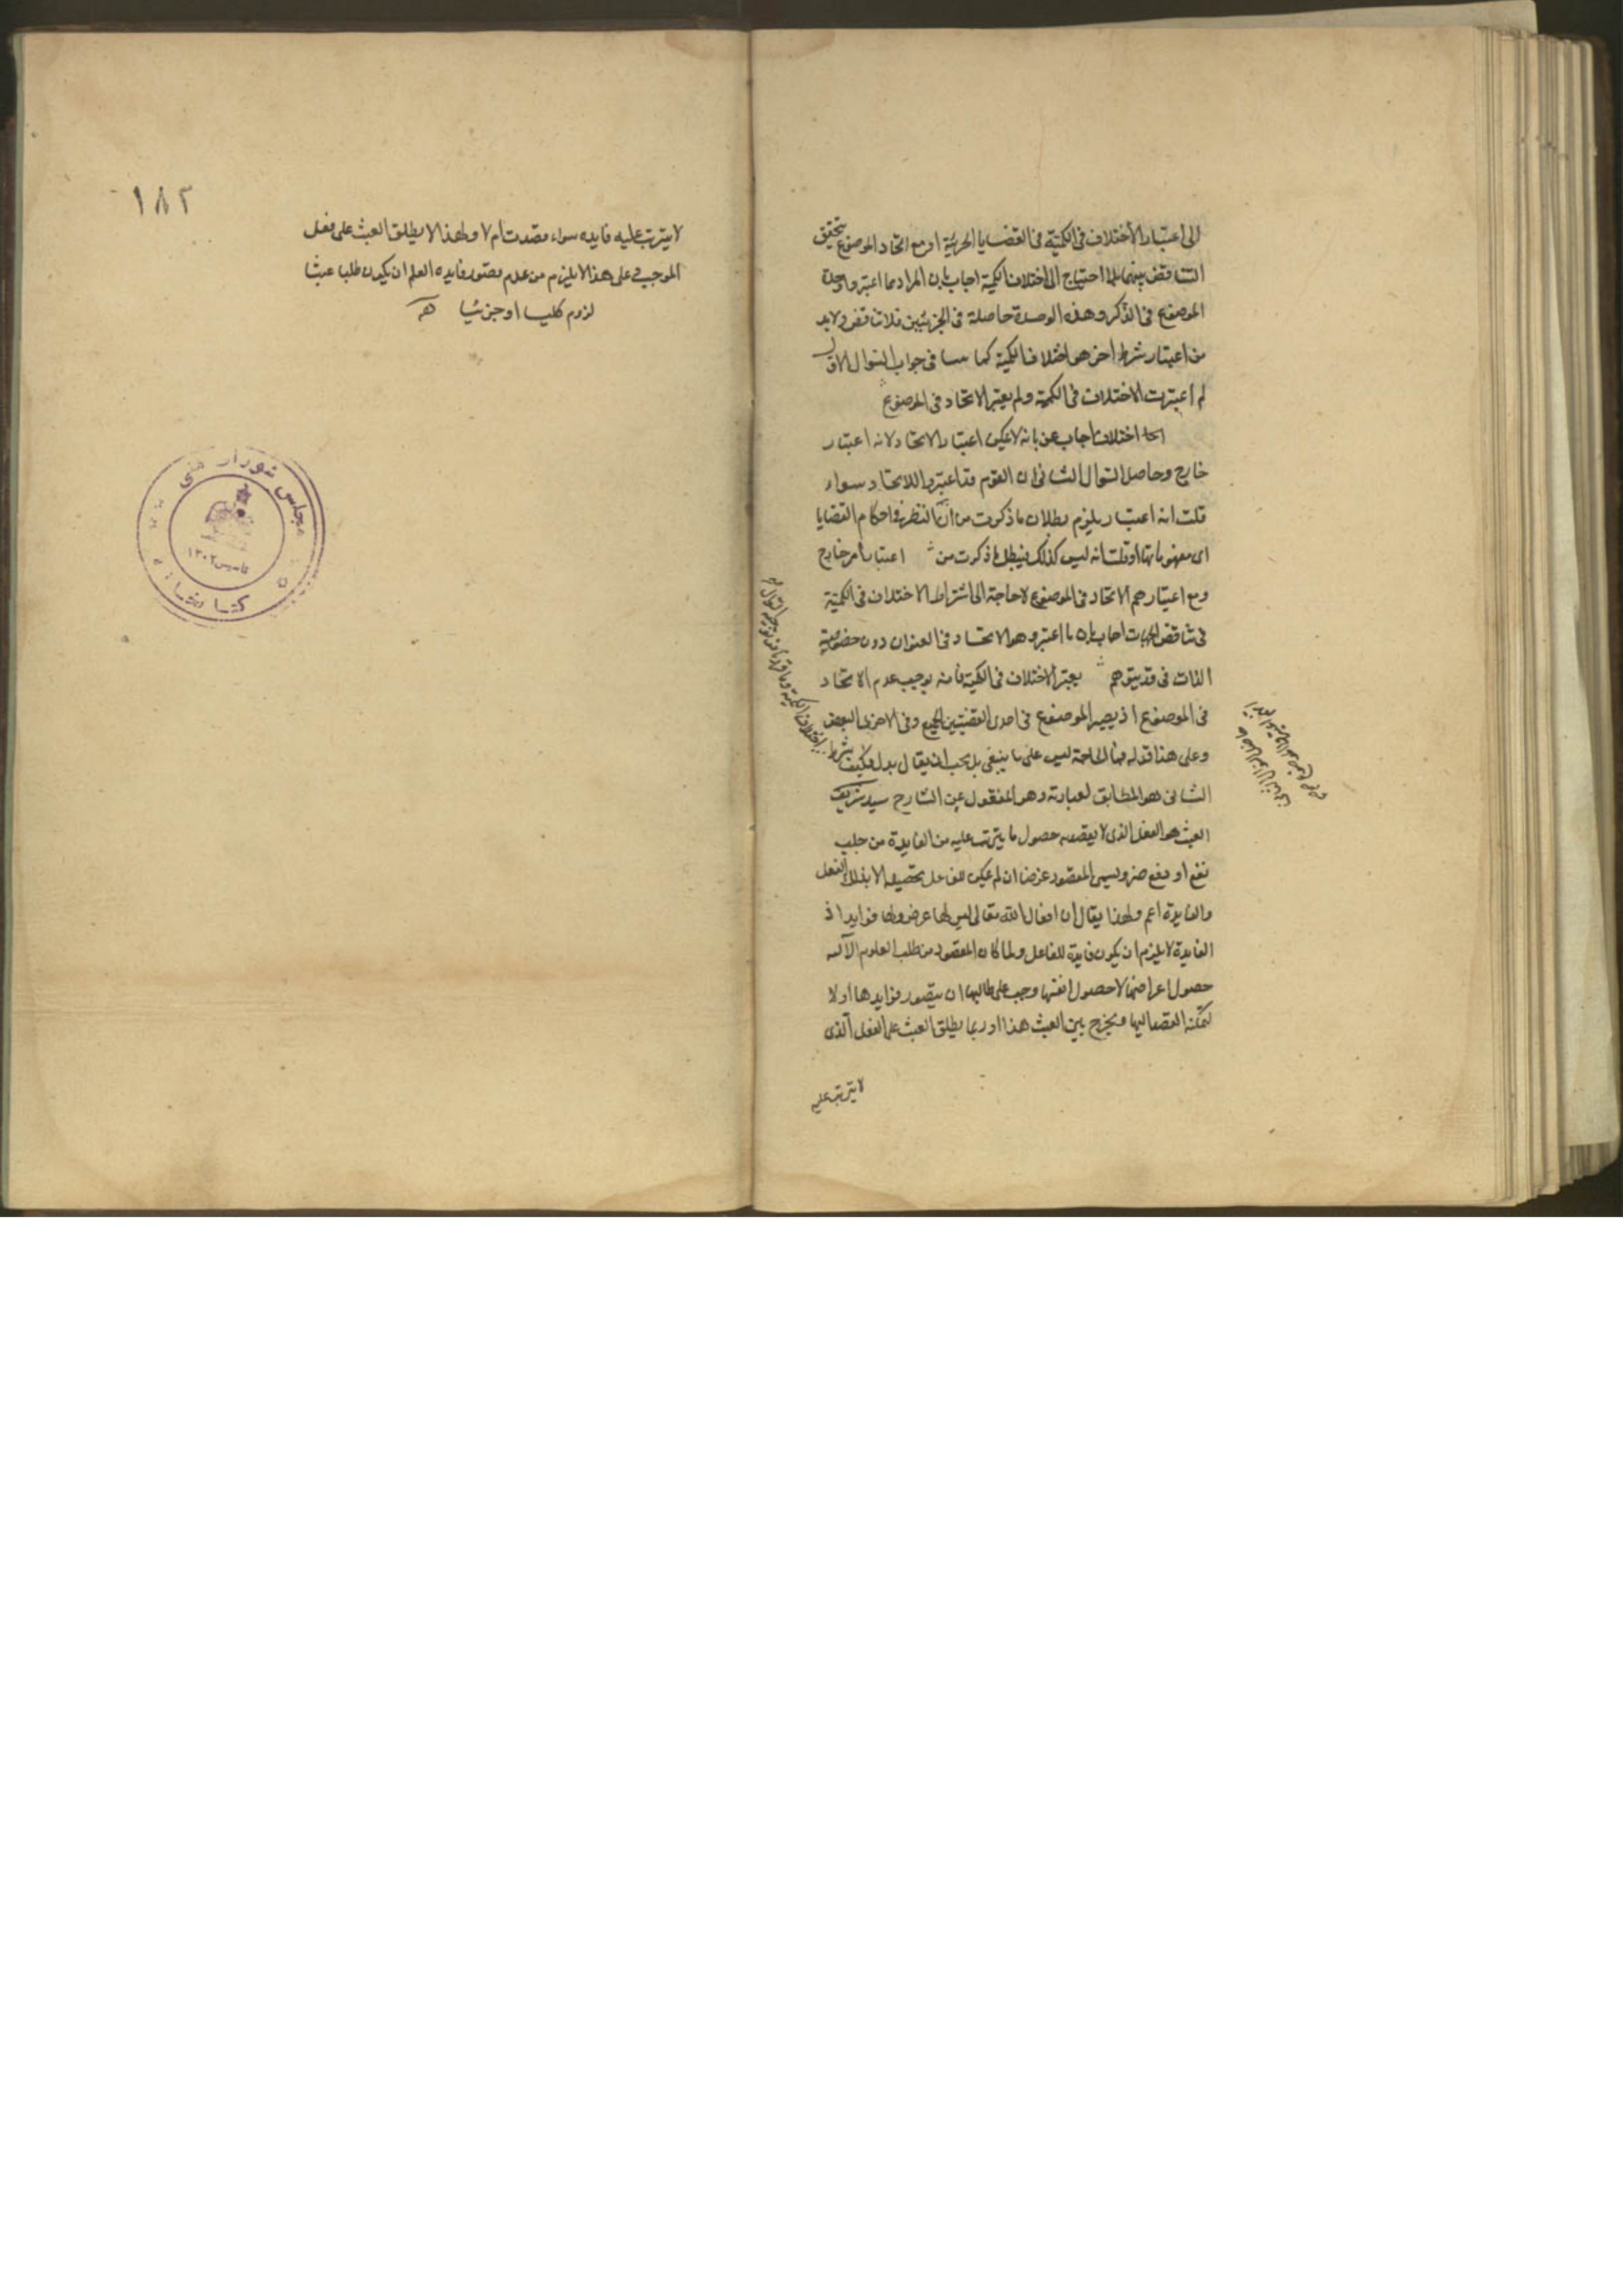 الى اعتبار الأختلاف فى الكميّة فى القضايا الجزئية اذ مع اتحاد الموضوع يتحقق
التناقض بينهما فلا احتياج الى اختلاف الكمية اجاب بان المراد مما اعتبروا وحدة
الموضوع فى الذكر وهذه الوحدة حاصلة فى الجزئيتين فلا تناقض ولابد
من اعتبار شرط اخر هو اختلاف الكمية كما فى جواب السوال الاول
لم اعتبرت الاختلاف فى الكمية ولم يعتبر الاتحاد فى الموضوع
اختلافا اجاب عن بانه لا يمكن اعتبار الاتحاد لانه اعتبار
خارج وحاصل السوال الثانى ان القوم قد اعتبروا الاتحاد سواء
قلت انه اعتبار يلزم بطلان ما ذكرت من ان النظر فى احكام القضايا
اى مفهوماتها او قلت انه ليس كذلك فيبطل ما ذكرت من اعتبار امر خارج
ومع اعتبارهم الاتحاد فى الموضوع لا حاجة الى اشتراط الاختلاف فى الكميّة
فى تناقض اجاب بان ما اعتبروه هو الاتحاد فى العنوان دون خصوصية
الذات فى قد يتوهم يعتبر الاختلاف فى الكمية فانه يوجب عدم الاتحاد
فى الموضوع اذ يصير الموضوع فى احدى القضيتين الجميع وفى الاخرى البعض
وعلى هذا قوله فما الحاجة ليس على ما ينبغى بل يجب ان يقال بدل فكيف يشترط
الثانى هو المطابق لعبارته وهو المنقول عن الشارح سيد شريف
العبث هو الفعل الذى لا يقصد حصول ما يترتب عليه من الفايدة من جلب
نفع او دفع ضر ويسمى المقصود غرضا ان لم يمكن للفاعل تحصيله الا بذلك الفعل
والفايدة اعم ولهذا يقال ان افعال الله تعالى ليس لها غرض ولها فوايد اذ
الفايدة لا يلزم ان يكون فايدة للفاعل ولما كان المقصود من طلب العلوم الآلية
حصول اغراضها لا حصول انفسها وجب على طالبها ان يتصور فوايدها اولا
ليمكنه القصد اليها ويخرج عن العبث هذا وربما يطلق العبث على الفعل الذى
لا يترتب عليه
١٨٢
لا يترتب عليه فايده سواء قصدت ام لا ولهذا لا يطلق العبث على فعل
الموجب فعلى هذا لا يلزم من عدم تصور فايده العلم ان يكون طلبا عبثا
لزوم كليا او جزئيا
مجلس شورای ملی
تاسیس ۱۳۰۲
کتابخانه